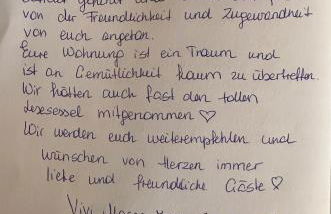 von der Freundlichkeit und Zugewandtheit
von euch angetan.
Eure Wohnung ist ein Traum und
ist an Gemütlichkeit kaum zu übertreffen.
Wir hätten auch fast den tollen
Lesesessel mitgenommen ♡
Wir werden euch weiterempfehlen und
wünschen von Herzen immer
liebe und freundliche Gäste ♡